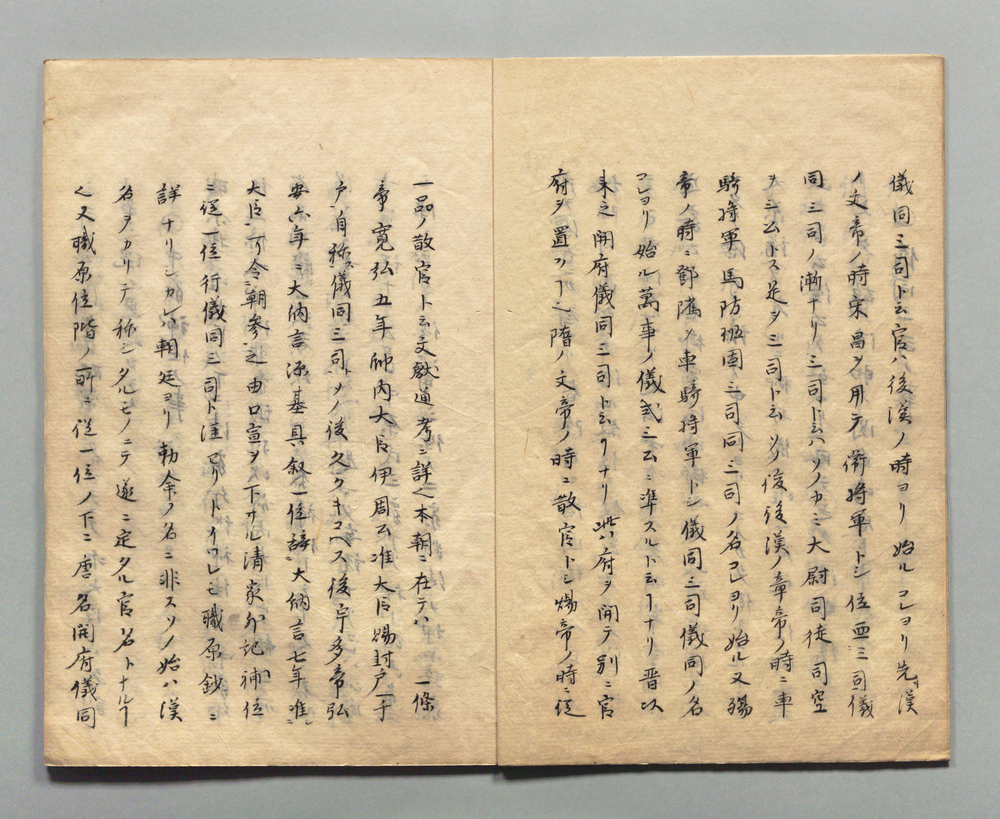 儀同三司ト云官ハ後漢ノ時ヨリ始ルコレヨリ先漢
ノ文帝ノ時宋昌ヲ用テ衛将軍トシ位亜三司儀
同三司ノ漸ナリ三司ト云ハソノカミ大尉司徒司空
ヲシ云トス是ヲ三司ト云ソノ後後漢ノ章帝ノ時ニ車
騎将軍馬防班固三司同三司ノ名コレヨリ始ル又殤
帝ノ時ニ鄧隲ヲ車騎将軍トシ儀同三司儀同ノ名
コレヨリ始ル萬事ノ儀式三公ニ準スルト云ーナリ晋以
来之開府儀同三司ト云リナリ此ハ府ヲ開テ別ニ官
府ヲ置クー之隋ノ文帝ノ時ニ散官トシ煬帝ノ時ニ従
一品ノ散官ト云文献通考ニ詳之本朝ニ在テハ一條
帝寛弘五年帥内大臣伊周公准大臣賜封戸一千
戸自称儀同三司ソノ後久クキコヘス後宇多帝弘
安六年ニ大納言源基具叙一位辞大納言七年准
大臣可令朝参之由口宣ヲ下サル清家外記補位
ニ従一位行儀同三司ト注セリトイヘレモ職原鈔ニ
詳ナリシカレハ朝廷ヨリ勅命ノ名ニ非スソノ始ハ漢
名ヲカリテ称シタルモノニテ遂ニ定タル官名トナルー
之又職原位階ノ所ニ従一位ノ下ニ唐名開府儀同